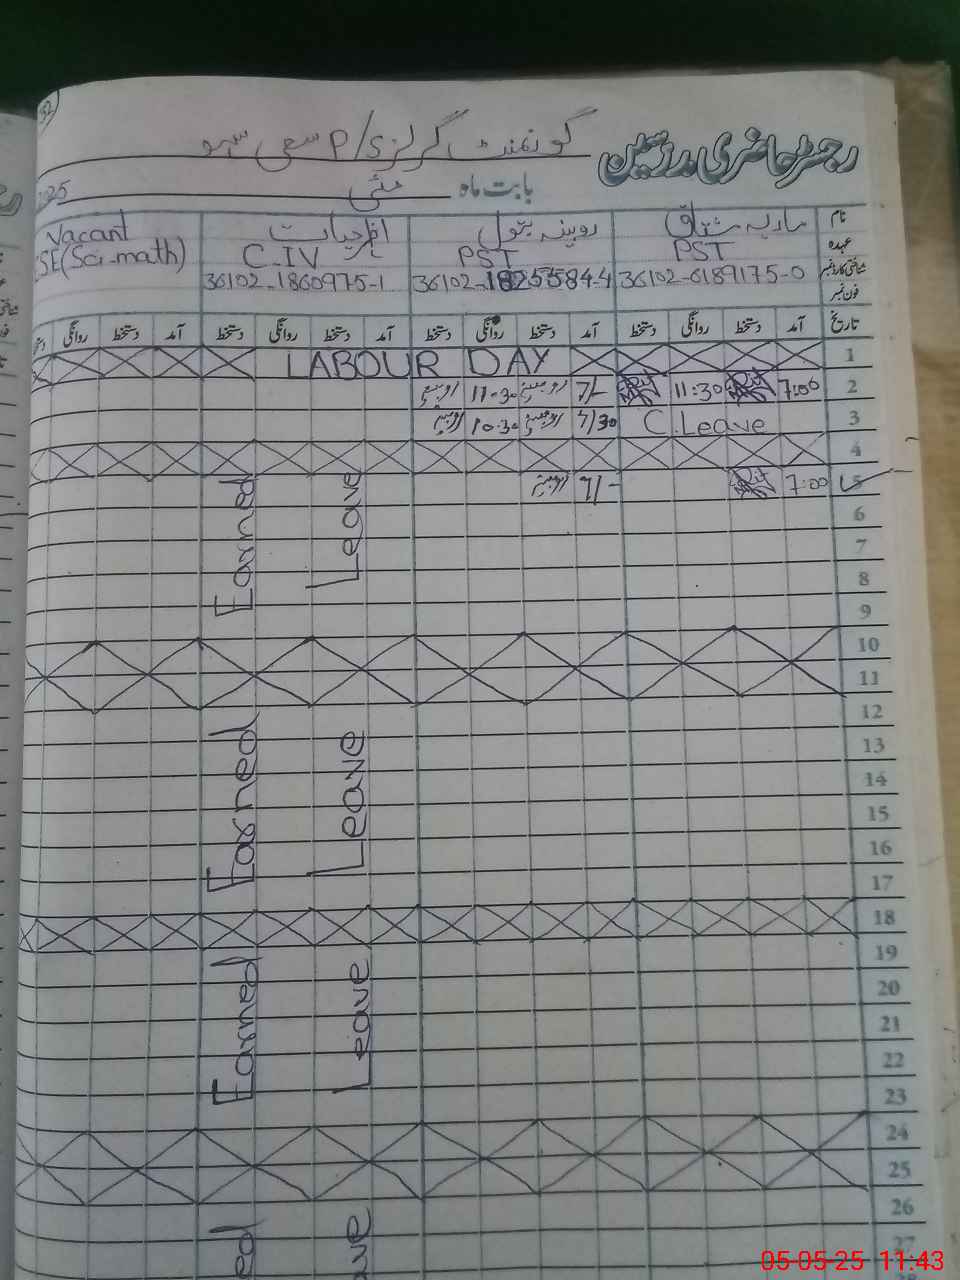 52
رجسٹر حاضری مدرسین گورنمنٹ گرلز P/S سعی سہو
بابت ماہ مئی 2025
نام ماریہ مشتاق روبینہ بتول Vacant
عہدہ PST PST C-IV SE(Sci-math)
شناختی کارڈ نمبر 36102-6189175-0 36102-1825584-4 36102-1860975-1
فون نمبر
تاریخ آمد دستخط روانگی دستخط آمد دستخط روانگی دستخط آمد دستخط روانگی دستخط آمد دستخط روانگی
1 LABOUR DAY
2 7:00 11:30 7/- روبینہ 11-30 روبینہ
3 C.Leave 7/30 روبینہ 10-30 روبینہ
4
5 7:00 7/- روبینہ
Earned Leave
6
7
8
9
10
11
12
Earned Leave
13
14
15
16
17
18
19
Earned Leave
20
21
22
23
24
25
26
27
05-05-25 11:43